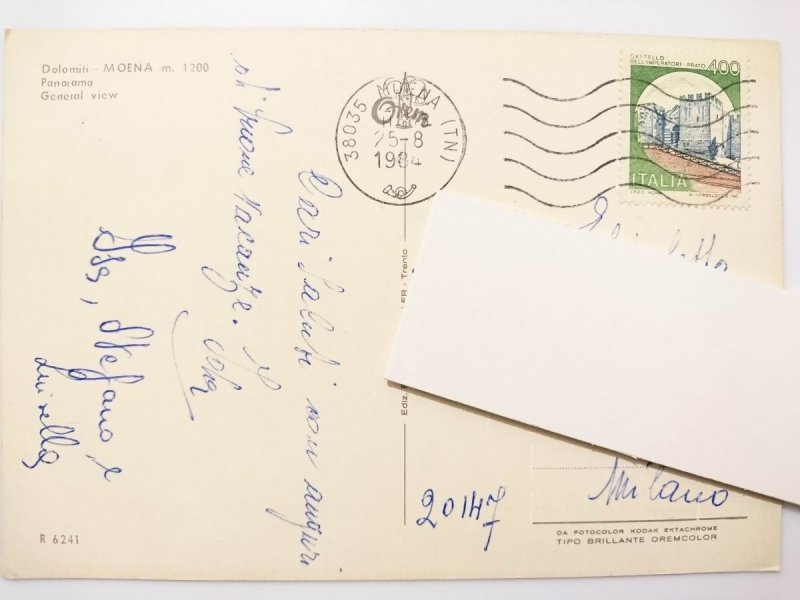 Dolomiti - MOENA m. 1200
Panorama
General view
Cari Saluti con auguri
di buone vacanze.
Isa, Stefano e
Luisella
38035 MOENA (TN)
25-8
1984
CASTELLO
DELL'IMPERATORE - PRATO 400
ITALIA
LER - Trento
Ediz.
20147
Milano
DA FOTOCOLOR KODAK EKTACHROME
TIPO BRILLANTE OREMCOLOR
R 6241